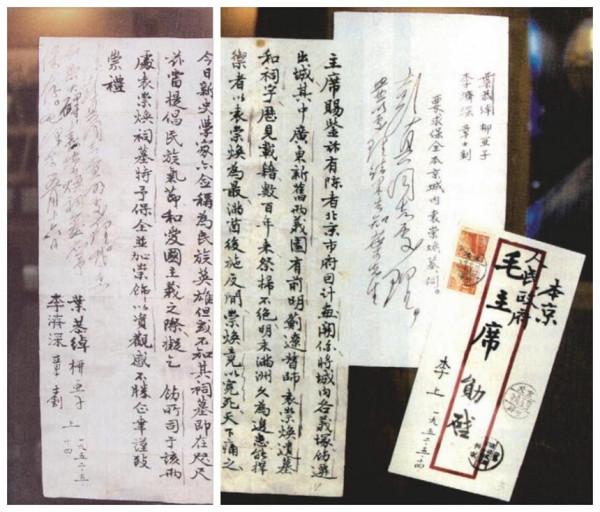 葉恭綽 柳亞子
李濟深 章士釗
要求保全本京城内袁崇煥墓祠。
彭真同志處理。
主席賜鑒茲有陳者北京市府因計劃關係將城内各義塚飭遷
出城其中廣東新舊兩義園有前明薊遼督師袁崇煥遺墓
和祠宇歷見載籍數百年來祭掃不絕明末滿洲久為邊患能捍
禦者以袁崇煥為最滿酋後施反間崇煥竟以冤死天下痛之
今日新史學家亦僉稱為民族英雄但或不知其祠墓即在咫尺
茲當提倡民族氣節和愛國主義之際擬乞 飭所司于該兩
處袁崇煥祠墓特予保全並加崇飾以資觀感不勝企幸謹致
崇禮
葉恭綽 柳亞子 上
李濟深 章士釗
一九五二·五·十四
本京
人民政府
毛主席 勛啓
李上 一九五二·五·十四